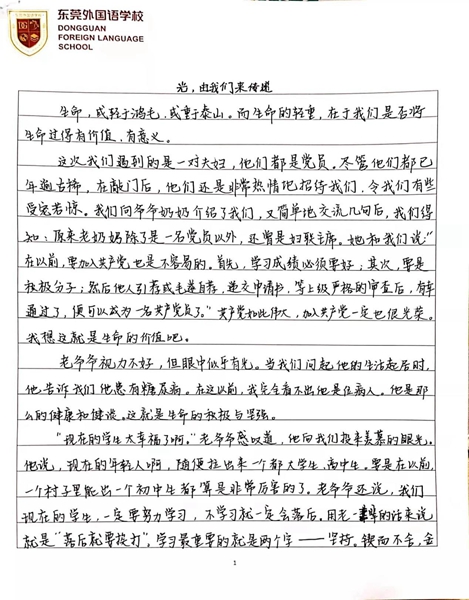 东莞外国语学校
DONGGUAN
FOREIGN LANGUAGE
SCHOOL
光，由我们来传递
生命，或轻于鸿毛，或重于泰山。而生命的轻重，在于我们是否将
生命过得有价值、有意义。
这次我们遇到的是一对夫妇，他们都是党员。尽管他们都已
年逾古稀，在敲门后，他们还是非常热情地招待我们，令我们有些
受宠若惊。我们向爷爷奶奶介绍了我们，又简单地交流几句后，我们得
知：原来老奶奶除了是一名党员以外，还曾是妇联主席。她和我们说“
在以前，要加入共产党也是不容易的。首先，学习成绩必须要好；其次，要是
积极分子；然后他人引荐或毛遂自荐，递交申请书，等上级严格的审查后，有幸
通过了，便可以成为一名共产党员了。”共产党如此伟大，加入共产党一定也很光荣。
我想这就是生命的价值吧。
老爷爷视力不好，但眼中似乎有光。当我们问起他的生活起居时，
他告诉我们他患有糖尿病。在这以前，我完全看不出他是位病人。他是那
么的健康和健谈。这就是生命的积极与坚强。
“现在的学生太幸福了啊。”老爷爷感叹道，他向我们投来羡慕的眼光。
他说，现在的年轻人啊，随便拉出来一个都大学生、高中生。要是在以前，
一个村子里能出一个初中生都算是非常厉害的了。老爷爷还说，我们
现在的学生，一定要努力学习，不学习就一定会落后。用老一辈的话来说
就是“落后就要挨打”。学习最重要的就是两个字——坚持。锲而不舍，金
1